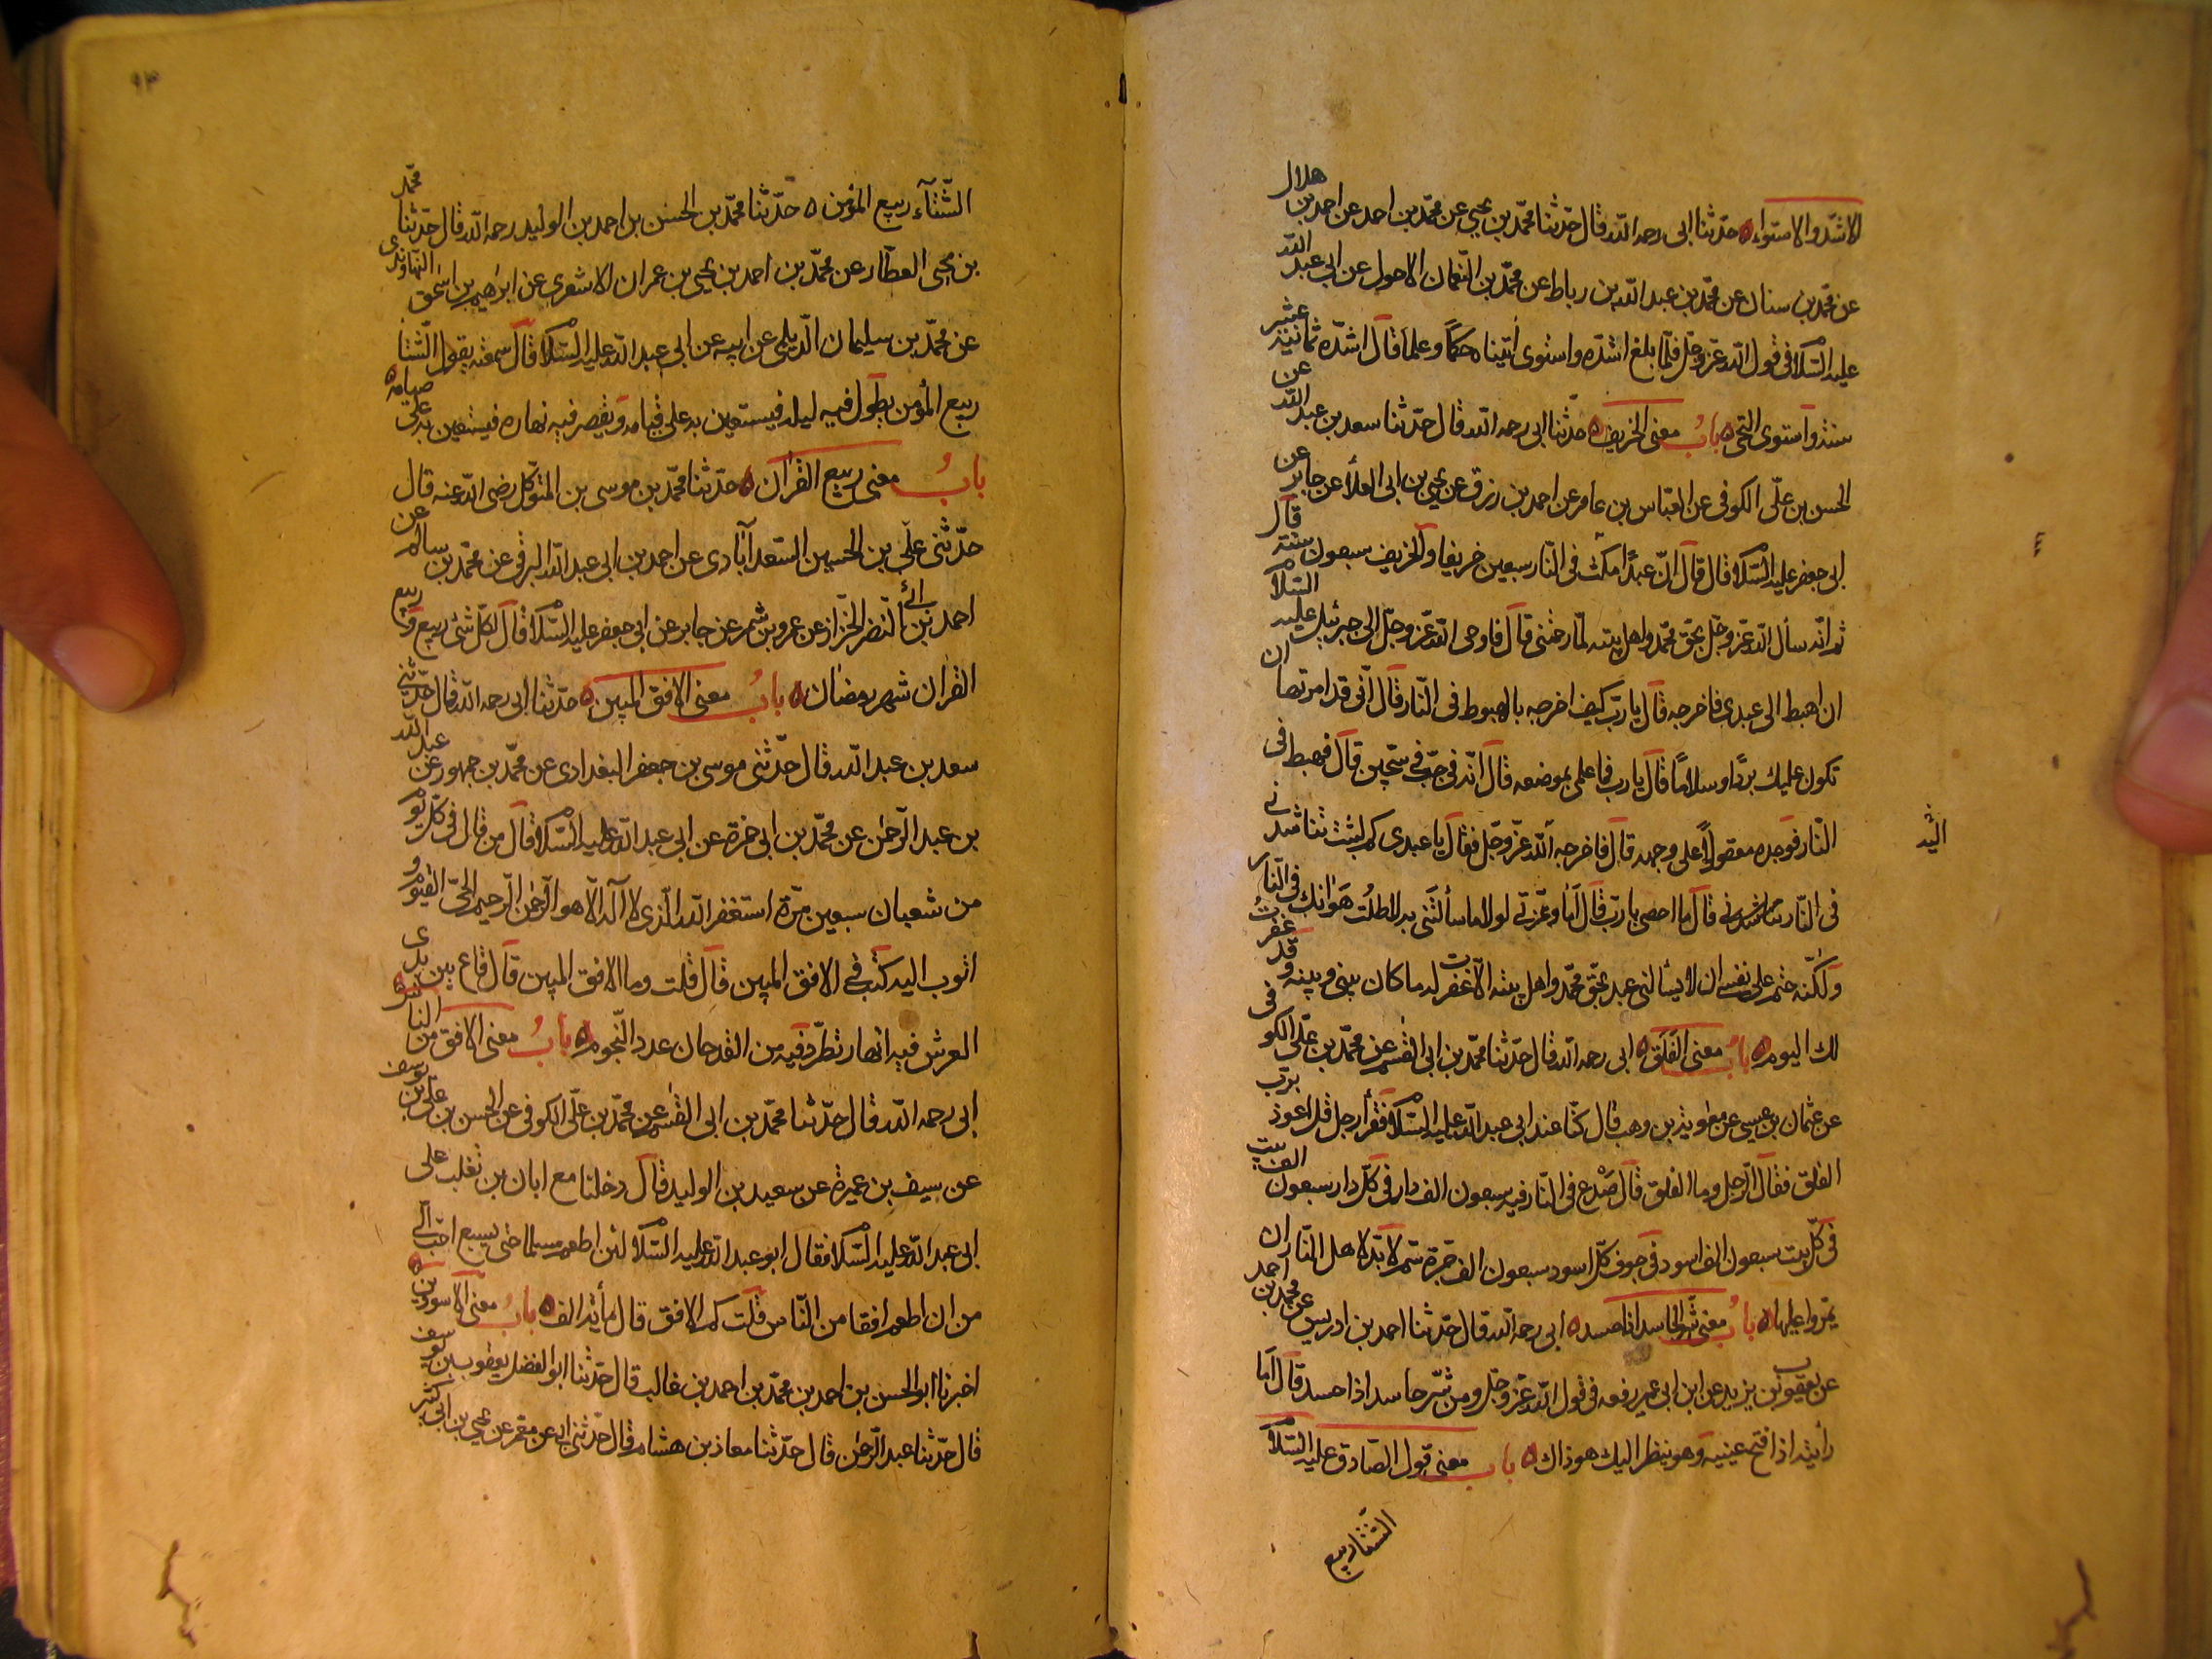 الاشدّ والاستواء ه حدّثنا ابى رحمه الله قال حدّثنا محمّد بن يحيى عن محمّد بن احمد عن احمد بن هلال
عن محمّد بن سنان عن محمّد بن عبد الله بن رباط عن محمّد بن النّعمان الاحول عن ابى عبد الله
عليه السّلام فى قول الله عزّ وجلّ فلمّا بلغ اشدّه واستوى اتيناه حكمًا وعلمًا قال اشدّه ثمانية عشر
سنة واستوى التحى ه باب معنى الخريف ه حدّثنا ابى رحمه الله قال حدّثنا سعد بن عبد الله عن
الحسن بن علّى الكوفى عن العبّاس بن عامر عن احمد بن رزق عن يحيى بن ابى العلأ عن جابر عن
ابى جعفر عليه السّلام قال قال انّ عبدًا مكث فى النّار سبعين خريفا والخريف سبعون سنة قال
ثم انّه سأل الله عزّ وجلّ بحقّ محمّد واهل بيته لمّا رحمتنى قال فاوحى الله عزّ وجلّ الى جبرئيل عليه السّلام
ان اهبط الى عبدى فاخرجه قال يا ربّ كيف اخرجه بالهبوط فى النّار قال انّى قد امرتها ان
تكون عليك بردًا وسلامًا قال يا رب فما علمى بموضعه قال انّه فى جبّ فى سجّين قال فهبط فى
النّار فوجده معقولاً على وجهه قال فاخرجه الله عزّ وجلّ فقال يا عبدى كم لبثت تناشدنى
اليه
فى النّار قال ما احصى يا ربّ قال اما وعزّتى لولا ما سألتنى به لاطلت هوانك فى النّار
ولكنّه حتم على نفسى ان لا يسألنى عبد بحّق محمّد واهل بيته الّا غفرت له ما كان بينى وبينه وقد غفرت
لك اليوم ه باب معنى الفلق ه ابى رحمه الله قال حدّثنا محمّد بن ابى القسم عن محمّد بن علّى الكوفى
عن عثمان بن عيسى عن معوية بن وهب قال كنّا عند ابى عبد الله عليه السّلام فقرأ رجل قل اعوذ بربّ
الفلق فقال الرّجل وما الفلق قال صْدع فى النّار فيه سبعون الف دار فى كلّ دار سبعون الف بيت
فى كلّ بيت سبعون الف اسود فى جوف كلّ اسود سبعون الف جرّة سّم لا بّد لاهل النّار ان
يمّروا عليها ه باب معنى شّر الحاسد اذا حسد ه ابى رحمه الله قال حدّثنا احمد بن ادريس عن محمّد بن احمد
عن يعقوب بن يزيد عن ابن ابى عمير رفعه فى قول الله عزّ وجلّ ومن شّر حاسد اذا حسد قال اما
رأيته اذا فتح عينيه وهو ينظر اليك هو ذاك ه باب معنى قول الصّادق عليه السّلام
الشّتا ربيع
٩٣
الشّتآء ربيع المؤمن ه حدّثنا محمّد بن الحسن بن احمد بن الوليد رحمه الله قال حدّثنا محمّد
بن يحيى العطّار عن محمّد بن احمد بن يحيى بن عمران الاشعرى عن ابرهيم بن اسحق النّهاوندى
عن محمّد بن سليمان الدّيلمى عن ابيه عن ابى عبد الله عليه السّلام قال سمعته يقول الشّتا
ربيع المؤمن يطول فيه ليله فيستعين به على قيامه ويقصر فيه نهاره فيستعين به على صيامه ه
باب معنى ربيع القرآن ه حدّثنا محمّد بن موسى بن المتوّكل رضى الله عنه قال
حدّثنى علّى بن الحسين السّعدآبادى عن احمد بن ابى عبد الله البرقى عن محمّد بن سالم عن
احمد بن النّضر الخّزاز عن عمرو بن شمر عن جابر عن ابى جعفر عليه السّلام قال لكّل شئ ربيع وربيع
القران شهر رمضان ه باب معنى الافق المبين ه حدّثنا ابى رحمه الله قال حدّثنى
سعد بن عبد الله قال حدّثنى موسى بن جعفر البغدادى عن محمّد بن جمهور عن عبد الله
بن عبد الرّحمن عن محمّد بن ابى حمزة عن ابى عبد الله عليه السّلام قال من قال فى كلّ يوم
من شعبان سبعين مّرة استغفر الله الّذى لا اله الّا هو الرّحمن الرّحيم الحّى القيّوم و
اتوب اليه كتب فى الافق المبين قال قلت وما الافق المبين قال قاع بين يدى
العرش فيه انهار تطّرد فيه من القدحان عدد النّجوم ه باب معنى الافق من النّاس ه
ابى رحمه الله قال حدّثنا محمّد بن ابى القسم عن محمّد بن علّى الكوفى عن الحسن بن علّى بن يوسف
عن سيف بن عميرة عن سعيد بن الوليد قال دخلنا مع ابان بن تغلب على
ابى عبد الله عليه السّلام فقال ابو عبد الله عليه السّلام لئن اطعم مسلما حتى يشبع احّب الى
من ان اطعم افقا من النّاس قلت كم الافق قال مأية الف ه باب معنى الاسودين ه
اخبرنا ابو الحسن بن احمد بن محمّد بن احمد بن غالب قال حدّثنا ابو الفضل يعقوب بن يوسف
قال حدّثنا عبد الرّحمن قال حدّثنا معاذ بن هشام قال حدّثنى ابى عن معمر عن يحيى بن ابى كثير